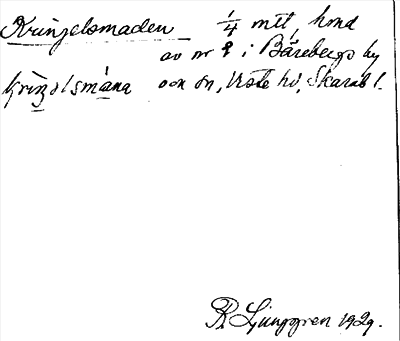 Kringelsmaden 1/4 mtl, hmd
av nr 9 i Bärebergs by
kriŋəlsmàna och sn, Viste hd, Skarab l.
R Ljunggren 1929.